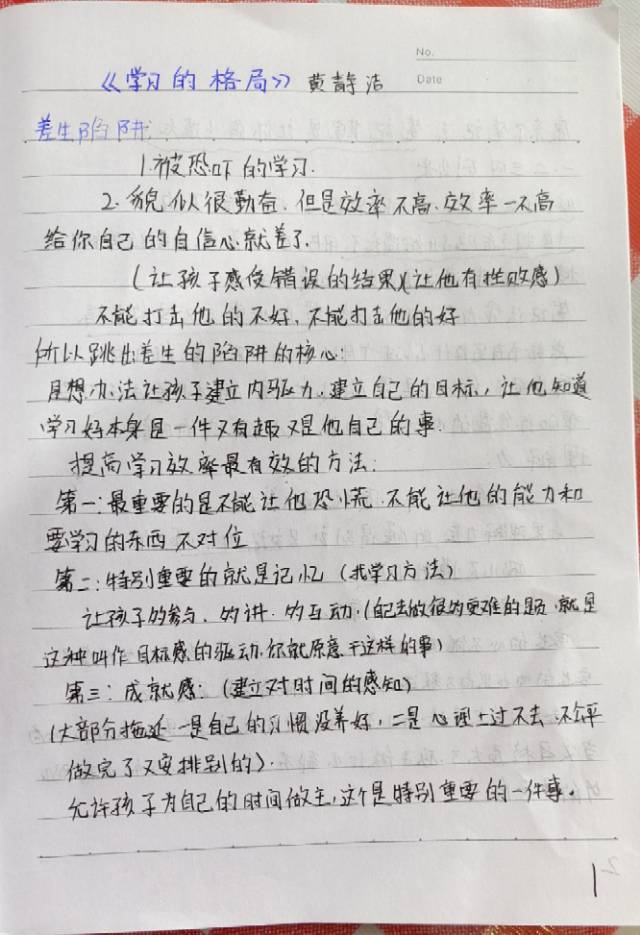 No.
Date
《学习的格局》 黄静洁
差生陷阱:
1.被恐吓的学习.
2.貌似很勤奋.但是效率不高.效率一不高
给你自己的自信心就差了.
(让孩子感受错误的结果)(让他有挫败感)
不能打击他的不好,不能打击他的好
所以跳出差生的陷阱的核心:
是想办法让孩子建立内驱力.建立自己的目标,让他知道
学习好本身是一件又有趣又是他自己的事.
提高学习效率最有效的方法:
第一:最重要的是不能让他恐慌.不能让他的能力和
要学习的东西不对位
第二:特别重要的就是记忆(找学习方法)
让孩子的参与.的讲.的互动.(自己去做很的更难的题.就是
这种叫作目标感的驱动.你就愿意干这样的事)
第三:成就感:(建立对时间的感知)
(大部分拖延一是自己的习惯没养好,二是心理上过不去.不公平
做完了又安排别的).
允许孩子为自己的时间做主,这个是特别重要的一件事.
1